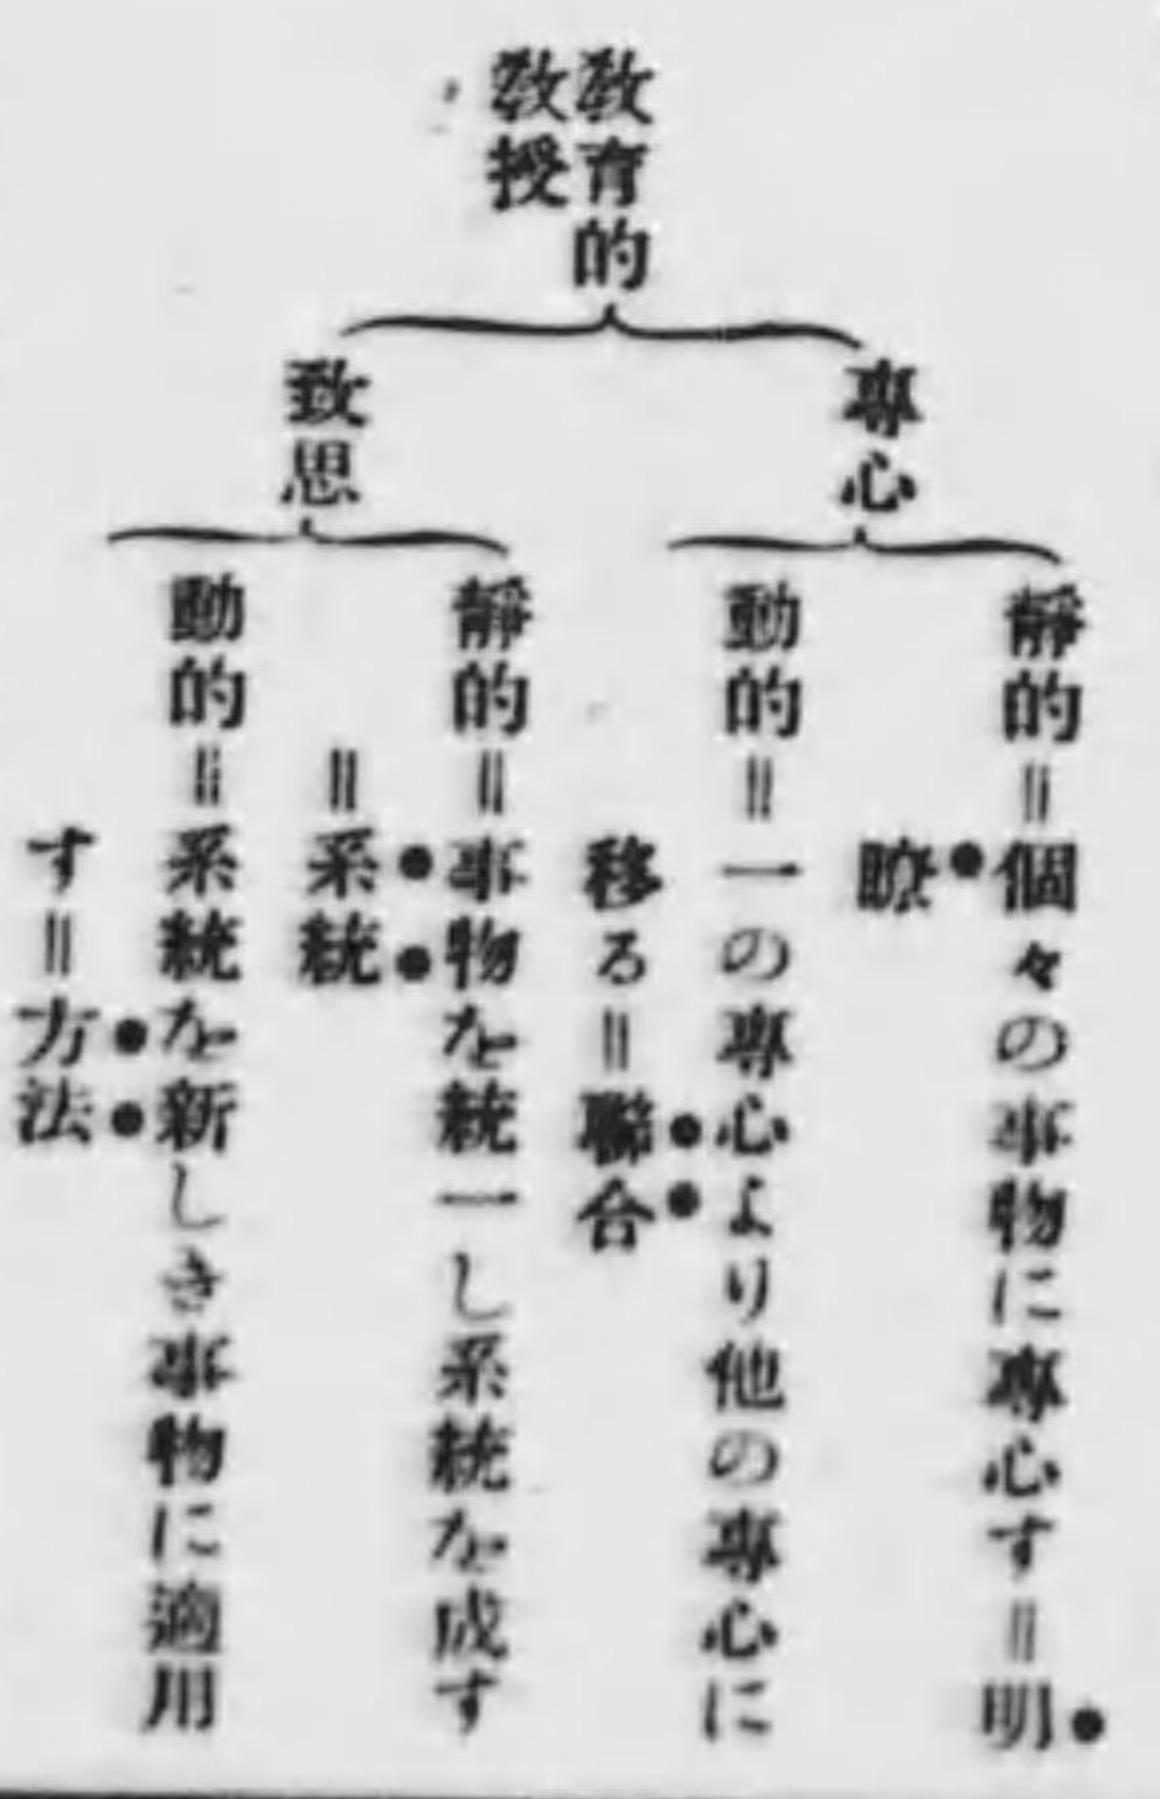 敎育的
敎授
專心
靜的=個々の事物に專心す=明
瞭
動的=一の專心より他の專心に
移る=聯合
致思
靜的=事物を統一し系統を成す
=系統
動的=系統を新しき事物に適用
す=方法